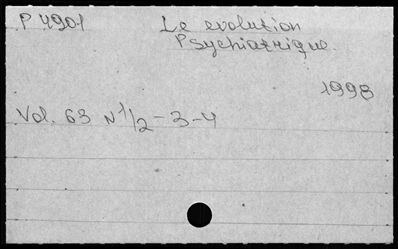 P 4901 Le evolution
Psychiatrique.
1998
Vol. 63 N 1/2-3-4